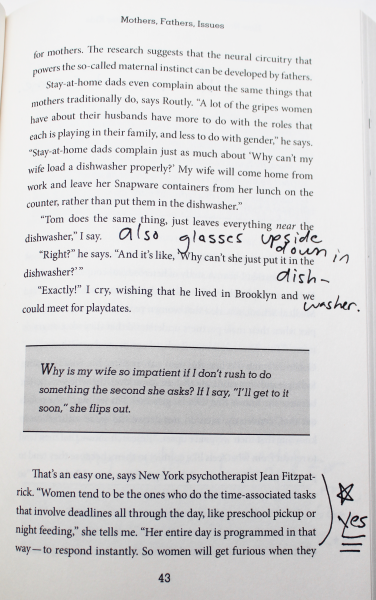 Mothers, Fathers, Issues
for mothers. The research suggests that the neural circuitry that
powers the so-called maternal instinct can be developed by fathers.
Stay-at-home dads even complain about the same things that
mothers traditionally do, says Routly. “A lot of the gripes women
have about their husbands have more to do with the roles that
each is playing in their family, and less to do with gender,” he says.
“Stay-at-home dads complain just as much about ‘Why can’t my
wife load a dishwasher properly?’ My wife will come home from
work and leave her Snapware containers from her lunch on the
counter, rather than put them in the dishwasher.”
“Tom does the same thing, just leaves everything near the
dishwasher,” I say.
also glasses upside
down in
dish-
washer.
“Right?” he says. “And it’s like, ‘Why can’t she just put it in the
dishwasher?’”
“Exactly!” I cry, wishing that he lived in Brooklyn and we
could meet for playdates.
Why is my wife so impatient if I don’t rush to do
something the second she asks? If I say, “I’ll get to it
soon,” she flips out.
That’s an easy one, says New York psychotherapist Jean Fitzpat-
rick. “Women tend to be the ones who do the time-associated tasks
that involve deadlines all through the day, like preschool pickup or
night feeding,” she tells me. “Her entire day is programmed in that
way—to respond instantly. So women will get furious when they
yes
43